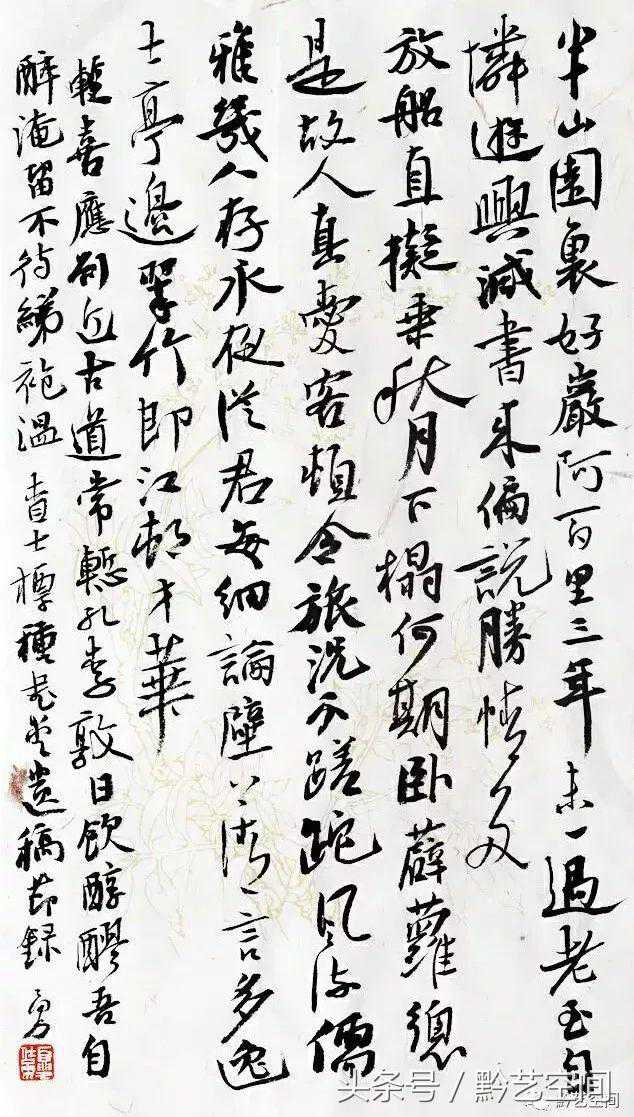 半山園裏好巖阿百里三年未一過老至自
憐遊興減書來偏說勝情多
放船直擬乘秋月下榻何期卧薜蘿總
是故人真愛客頓令旅洗不蹉跎風流儒
雅幾人存永夜從君每細論壁上清言多逸
士亭邊翠竹即江邨才華
喜應劉近古道常慙孔李敦日飲醇醪吾自
醉淹留不待綈袍溫 查士標種書堂遺稿節録
头条号／黔艺空间
黔艺空间